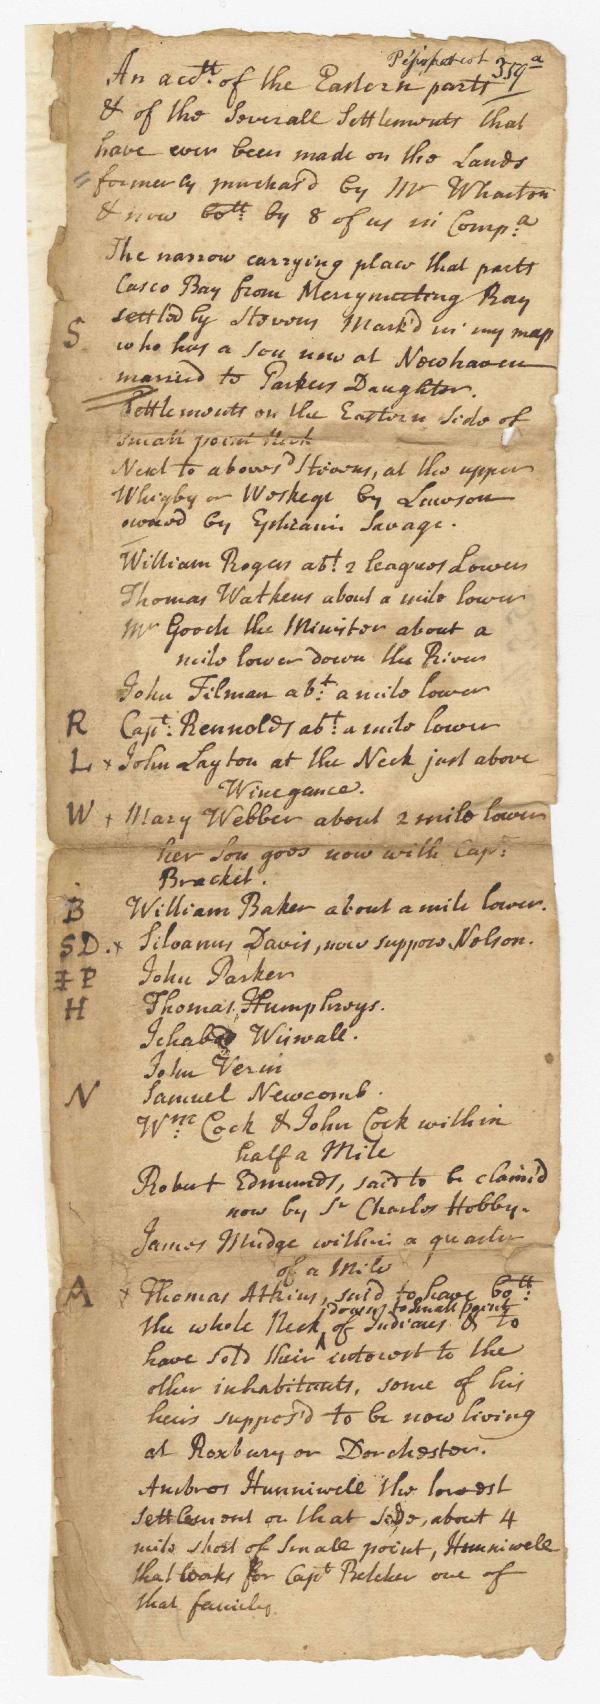 Pejepscot 359a
An acctt. of the Eastern parts
& of the Severall Settlements that
have ever been made on the Lands
formerly purchas'd by Mr Wharton
& now bott: by 8 of us in Compa.
The narrow carrying place that parts
Casco Bay from Merrymeeting Bay
S settled by Stevens Mark'd in my map
who has a Son now at Newhaven
married to Parkers Daughter.
Settlements on the Eastern Side of
Small point Neck
Next to aboves'd Stevens, at the upper
Whigby or Woskege by Lawson
owned by Ephraim Savage.
William Rogers abt. 2 leagues Lower
Thomas Watkens about a mile lower
Mr Gooch the Minister about a
mile lower down the River
John Filman abt. a mile lower
R Capt. Rennolds abt. a mile lower
L x John Layton at the Neck just above
Winegance.
W x Mary Webber about 2 mile lower
her Son goes now with Capt:
Bracket.
B William Baker about a mile lower.
SD. x Silvanus Davis, now suppose Nolson.
I P John Parker
H Thomas Humphreys.
Ichabod Wiswall.
John Verin
N Samuel Newcomb.
Wm: Cock & John Cock within
half a Mile
Robert Edmunds, said to be claim'd
now by Sr Charles Hobby.
James Mudge within a quarter
of a Mile
A x Thomas Atkins, said to have bott:
down to Small point
the whole Neck ^ of Indians & to
have sold their interest to the
other inhabitants, some of his
heirs suppos'd to be now living
at Roxbury or Dorchester.
Ambros Hunniwell the lowest
settlement on that side, about 4
mile short of Small point, Hunniwell
that looks for Capt Belcher one of
that family.